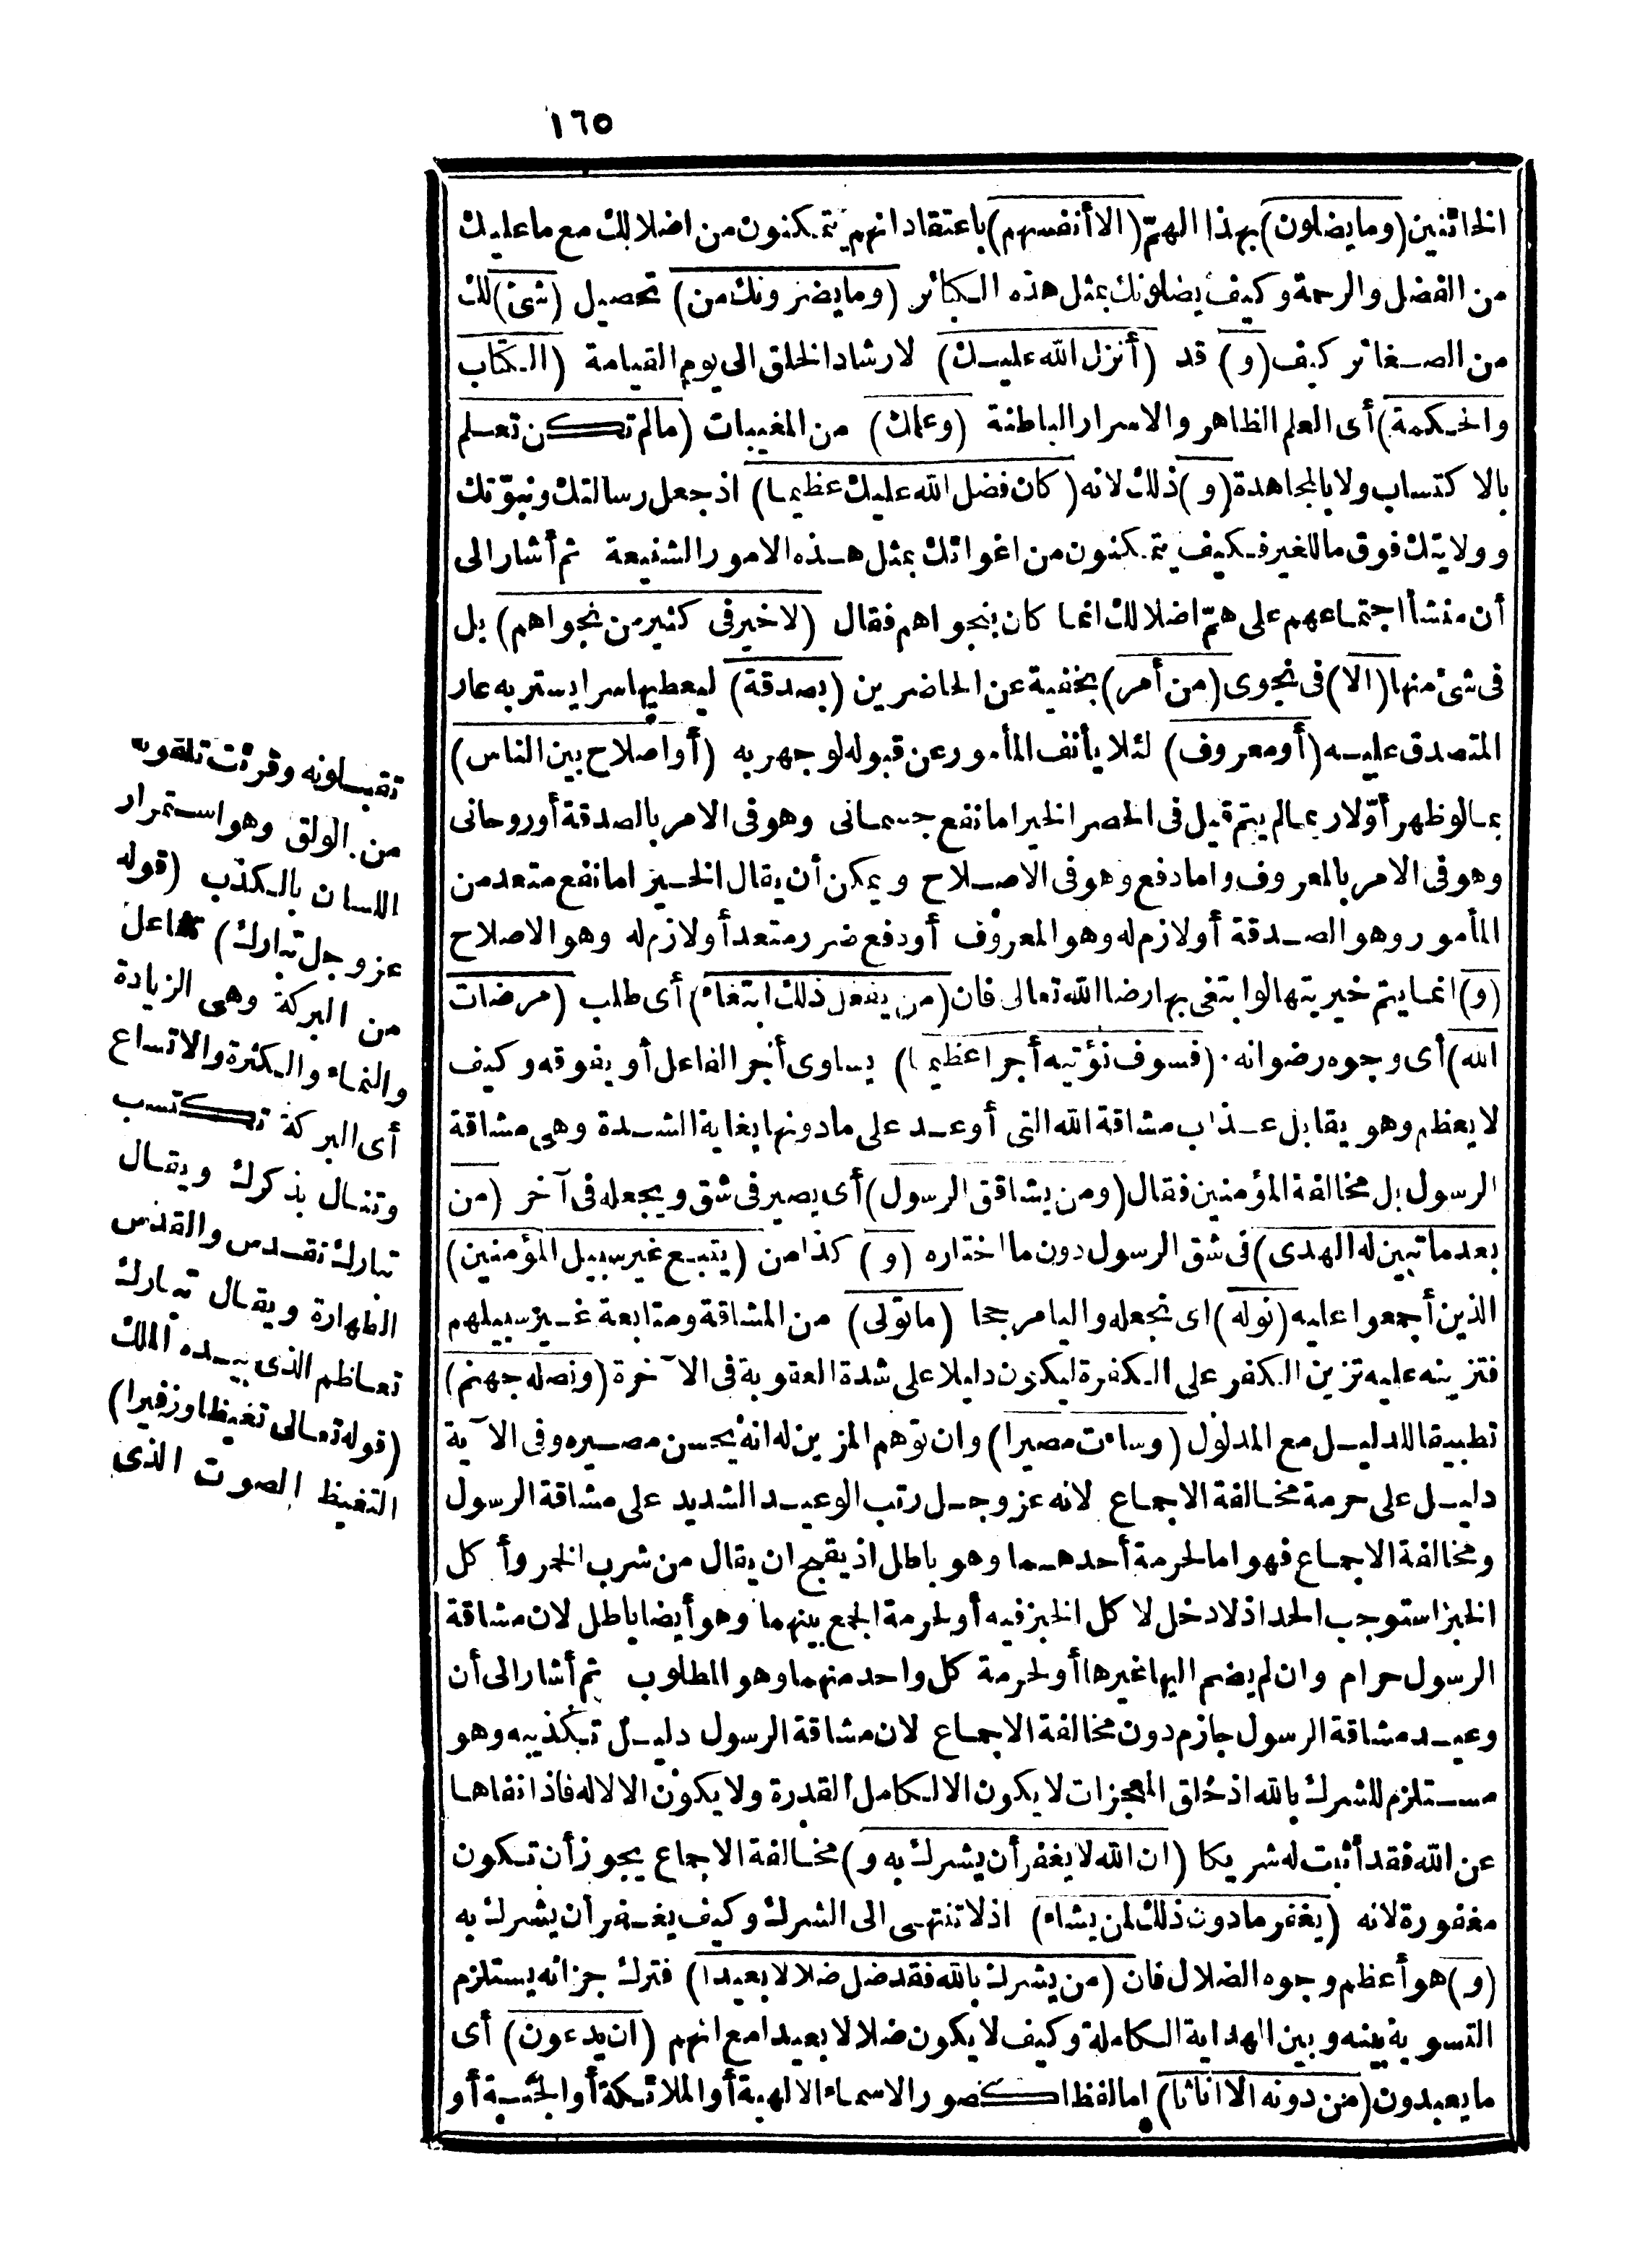 ١٦٥
الخائنين (وما يضلون) بهذا الهمّ (الا أنفسهم) باعتقاد انهم يتمكنون من اضلالك مع ما عليك
من الفضل والرحمة وكيف يضلونك بمثل هذه الكبائر (وما يضرونك من) تحصيل (شئ) لك
من الصغائر كيف (و) قد (أنزل الله عليك) لارشاد الخلق الى يوم القيامة (الكتاب
والحكمة) أى العلم الظاهر والاسرار الباطنة (وعلمك) من المغيبات (مالم تكن تعلم
بالاكتساب ولا بالمجاهدة (و) ذلك لانه (كان فضل الله عليك عظيما) اذ جعل رسالتك ونبوّتك
وولايتك فوق ما للغير فكيف يتمكنون من اغوائك بمثل هذه الامور الشنيعة ثم أشار الى
أن منشأ اجتماعهم على همّ اضلالك انما كان بنجواهم فقال (لا خير فى كثير من نجواهم) بل
فى شئ منها (الا) فى نجوى (من أمر) بخفية عن الحاضرين (بصدقة) ليعطيها سرا يستر به عار
المتصدق عليه (أو معروف) لئلا يأنف المأمور عن قبوله لو جهر به (أو اصلاح بين الناس)
بما لو ظهر أوّلا ربما لم يتم قيل فى الحصر الخير اما نفع جسمانى وهو فى الامر بالصدقة أو روحانى
وهو فى الامر بالمعروف واما دفع وهو فى الاصلاح ويمكن أن يقال الخير اما نفع متعد من
المأمور وهو الصدقة أو لازم له وهو المعروف أو دفع ضرر متعد أو لازم له وهو الاصلاح
(و) انما يتم خيريتها لو ابتغى بها رضا الله تعالى فان (من يفعل ذلك ابتغاء) أى طلب (مرضات
الله) أى وجوه رضوانه (فسوف نؤتيه أجرا عظيما) يساوى أجر الفاعل أو يفوقه وكيف
لا يعظم وهو يقابل عذاب مشاقة الله التى أوعد على ما دونها بغاية الشدة وهى مشاقة
الرسول بل مخالفة المؤمنين فقال (ومن يشاقق الرسول) أى يصير فى شق ويجعله فى آخر (من
بعد ما تبين له الهدى) فى شق الرسول دون ما اختاره (و) كذا من (يتبع غير سبيل المؤمنين)
الذين أجمعوا عليه (نوله) اى نجعله واليا مرجحا (ما تولى) من المشاقة ومتابعة غير سبيلهم
فتزينه عليه تزين الكفر على الكفرة ليكون دليلا على شدة العقوبة فى الآخرة (ونصله جهنم)
تطبيقا للدليل مع المدلول (وساءت مصيرا) وان توهم المزين له انه يحسن مصيره وفى الآية
دليل على حرمة مخالفة الاجماع لانه عز وجل رتب الوعيد الشديد على مشاقة الرسول
ومخالفة الاجماع فهو اما لحرمة أحدهما وهو باطل اذ يقبح ان يقال من شرب الخمر وأكل
الخبز استوجب الحد اذ لا دخل لاكل الخبز فيه أو لحرمة الجمع بينهما وهو أيضا باطل لان مشاقة
الرسول حرام وان لم يضم اليها غيرها أو لحرمة كل واحد منهما وهو المطلوب ثم أشار الى أن
وعيد مشاقة الرسول جازم دون مخالفة الاجماع لان مشاقة الرسول دليل تكذيبه وهو
مستلزم للشرك بالله اذ خلق المعجزات لا يكون الا لكامل القدرة ولا يكون الا لاله فاذا نفاها
عن الله فقد أثبت له شريكا (ان الله لا يغفر أن يشرك به و) مخالفة الاجماع يجوز أن تكون
مغفورة لانه (يغفر ما دون ذلك لمن يشاء) اذ لا تنتهى الى الشرك وكيف يغفر أن يشرك به
(و) هو أعظم وجوه الضلال فان (من يشرك بالله فقد ضل ضلالا بعيدا) فترك جزائه يستلزم
التسوية بينه وبين الهداية الكاملة وكيف لا يكون ضلالا بعيدا مع انهم (ان يدعون) أى
ما يعبدون (من دونه الا اناثا) اما لفظا كصور الاسماء الالهية أو الملائكة أو الجنية أو
تقبلونه وقرئت تلقونه
من الولق وهو استمرار
اللسان بالكذب (قوله
عز وجل تبارك) تفاعل
من البركة وهى الزيادة
والنماء والكثرة والاتساع
أى البركة تكتسب
وتنال بذكرك ويقال
تبارك تقدس والقدس
الطهارة ويقال تبارك
تعاظم الذى بيده الملك
(قوله تعالى تغيظا وزفيرا)
التغيظ الصوت الذى